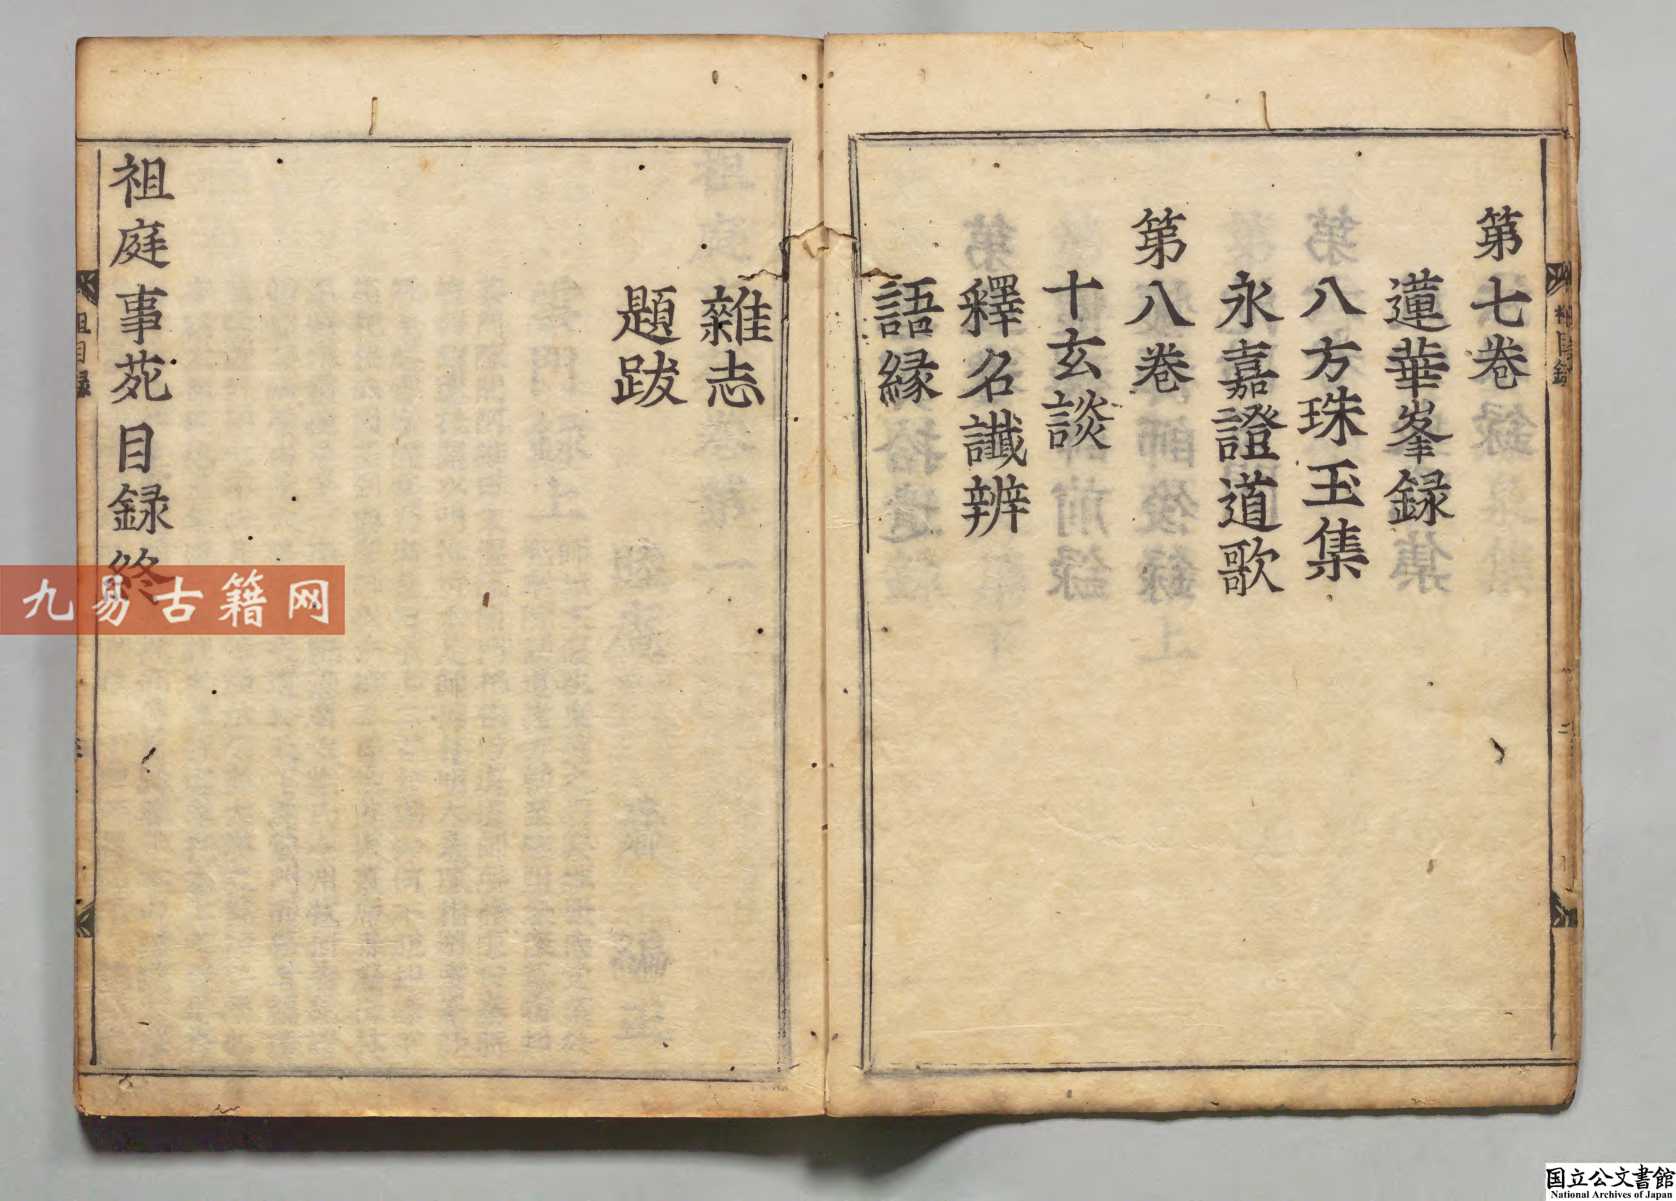 第七卷
蓮華峯録
八方珠玉集
永嘉證道歌
第八卷
十玄談
釋名讖辨
語縁
雜志
題跋
祖庭事苑目録終
祖目録
九易古籍网
国立公文書館
National Archives of Japan